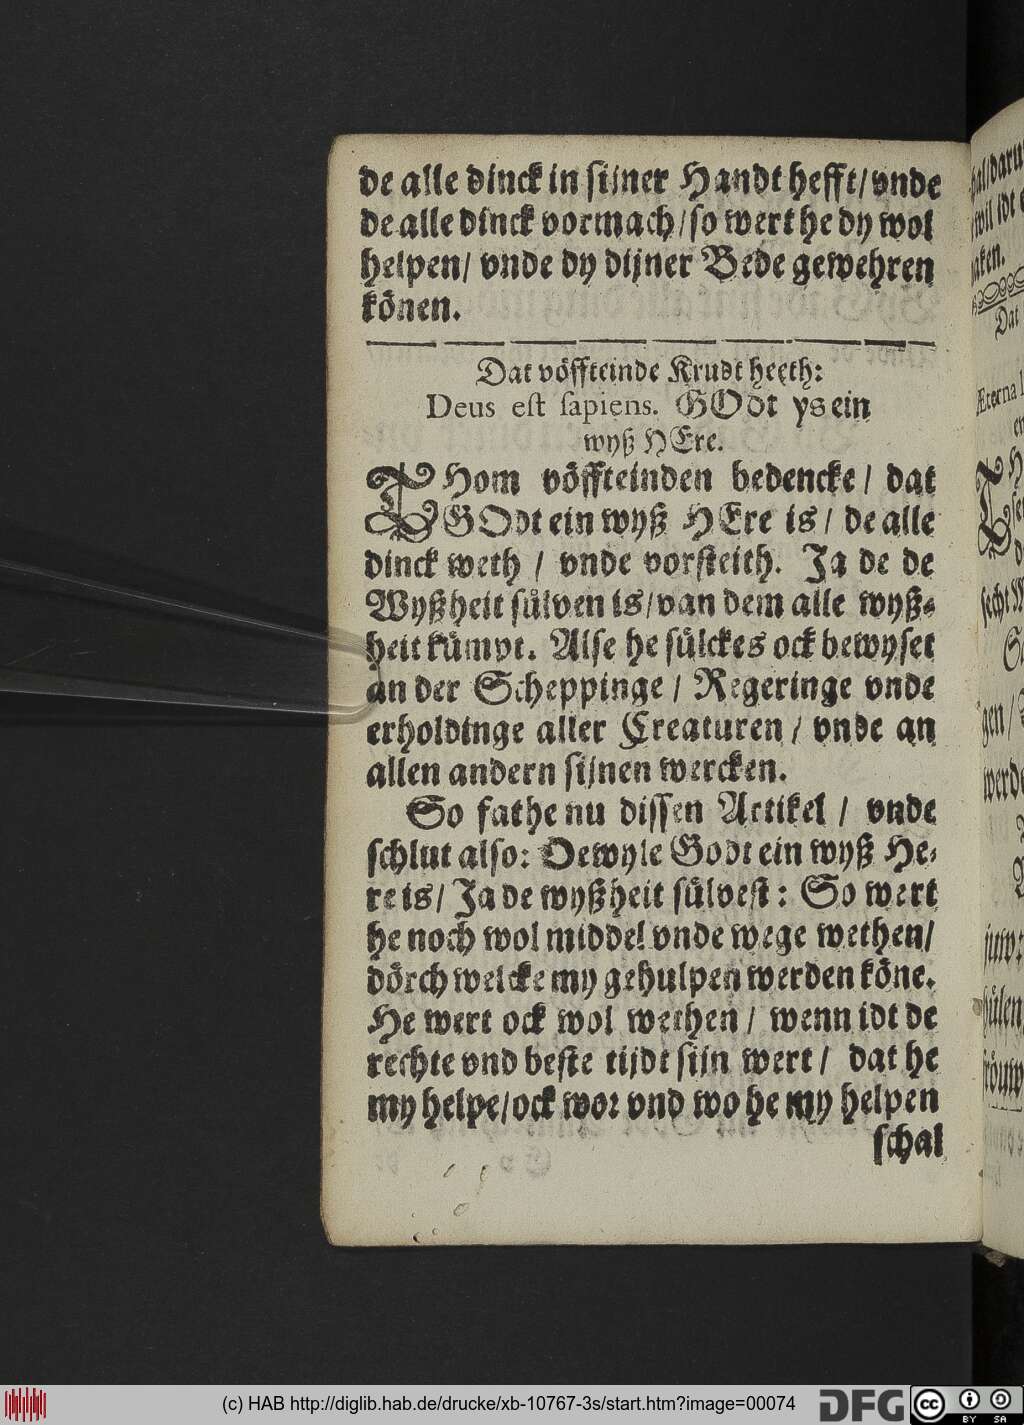 de alle dinck in sijner Handt hefft / vnde
de alle dinck vormach / so wert he dy wol
helpen / vnde dy dijner Bede gewehren
könen.
Dat vöffteinde Krudt heeth:
Deus est sapiens. GOdt ys ein
wyß HEre.
THom vöffteinden bedencke / dat
GOdt ein wyß HEre is / de alle
dinck weth / vnde vorsteith. Ja de de
Wyßheit sülven is / van dem alle wyß-
heit kümpt. Alse he sülckes ock bewyset
an der Scheppinge / Regeringe vnde
erholdinge aller Creaturen / vnde an
allen andern sijnen wercken.
So fathe nu dissen Artikel / vnde
schlut also: Dewyle Godt ein wyß He-
re is / Ja de wyßheit sülvest: So wert
he noch wol middel vnde wege wethen /
dörch welcke my gehulpen werden köne.
He wert ock wol wethen / wenn idt de
rechte vnd beste tijdt sijn wert / dat he
my helpe / ock wor vnd wo he my helpen
schal
(c) HAB http://diglib.hab.de/drucke/xb-10767-3s/start.htm?image=00074
DFG
cc
BY SA